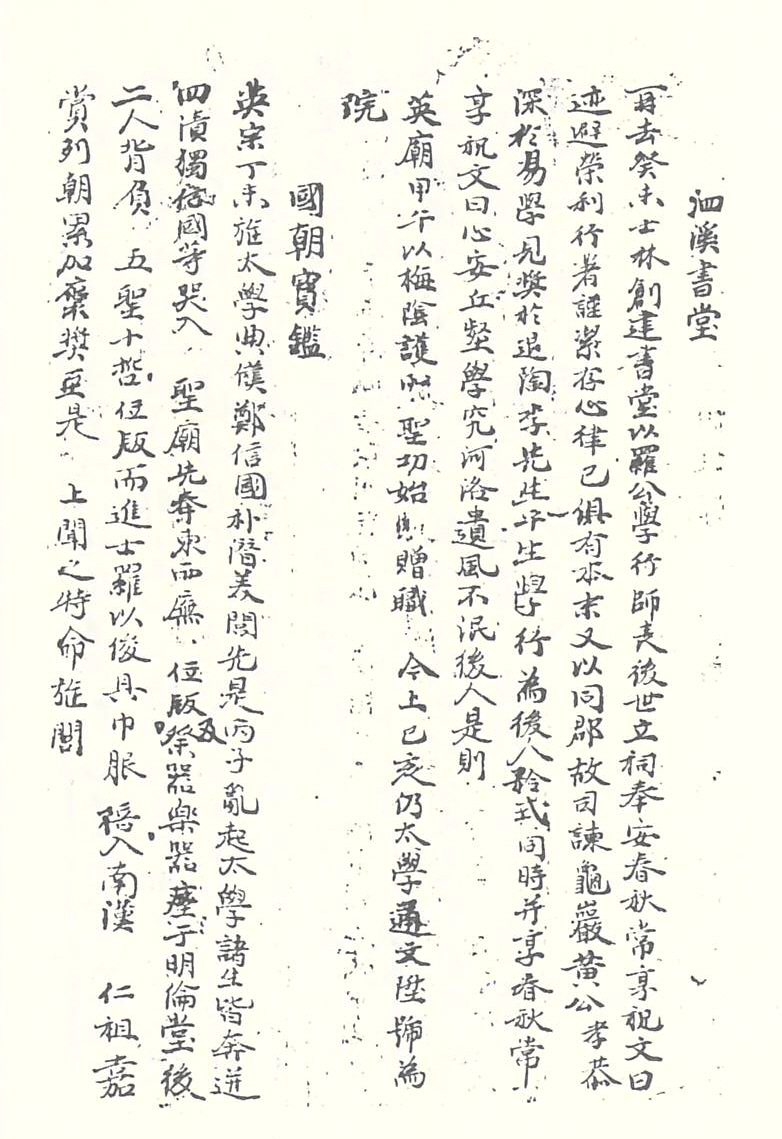 泗溪書堂
再去癸未士林創建書堂以羅公學行師表後世立祠奉安春秋常享祝文曰
迹避榮利行著誰潔存心律己俱有本末又以同郡故司諫龜巖黃公孝恭
深於易學見獎於退陶李先生平生學行爲後人矜式同時幷享春秋常
享祝文曰心安丘壑學究河洛遺風不泯後人是則
英廟甲午以梅陰護 聖功始 贈職 今上己亥仍太學通文陞號爲
院
國朝寶鑑
英宗丁未旌太學典僕鄭信國朴潛美閭先是丙子亂起太學諸生皆奔迸
四潰獨信國等哭入 聖廟先奉東西廡 位版五祭器樂器瘞于明倫堂後
二人背負 五聖十哲位版而進士羅以俊具巾服 陪入南漢 仁祖嘉
賞列朝累加褒獎至是 上聞之特命旌閭